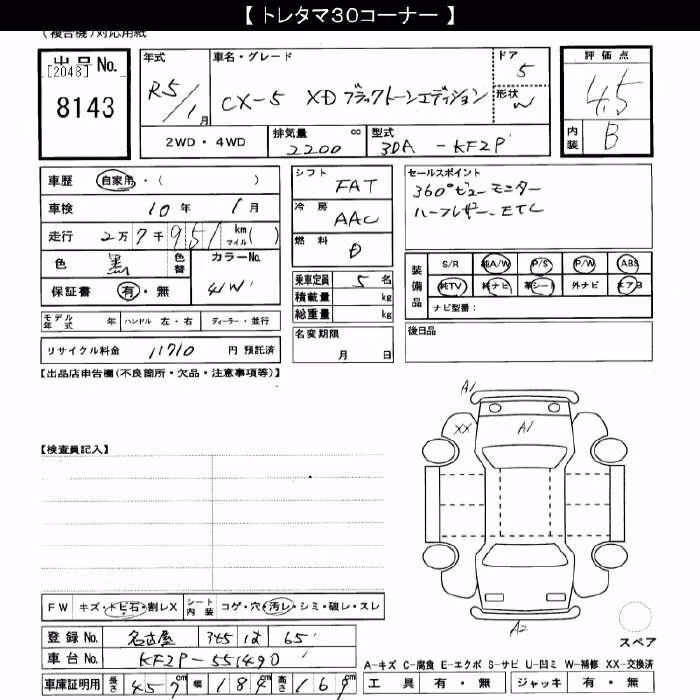 【トレタマ30コーナー】
(複合機)対応用紙
出品No. [2048] 8143
年式 R5/1月
車名・グレード CX-5 XD ブラックトーンエディション
ドア 5
形状 W
評価点 4.5
内装 B
2WD・4WD
排気量 cc 2200
型式 3DA-KF2P
車歴 自家用・( )
車検 10年 1月
走行 2万7千951 km マイル( )
色 黒 色替 カラーNo. 41W
保証書 有・無
モデル年式 年 ハンドル 左・右 ディーラー・並行
リサイクル料金 11710 円 預託済
シフト FAT
冷房 AAC
燃料 D
乗車定員 5名
積載量 kg
総重量 kg
名変期限 月 日
セールスポイント
360°ビューモニター
ハーフレザー、ETC
装備品 S/R 純A/W P/S P/W ABS
純TV 純ナビ 革シート 外ナビ エアB
ナビ型番:
後日品
【出品店申告欄(不良箇所・欠品・注意事項等)】
【検査員記入】
A1
XX A1
A2
スペア
FW キズ・トビ石・割レX シート内装 コゲ・穴・汚レ・シミ・破レ・スレ
登録No. 名古屋 345 は 65
車台No. KF2P-551490
車庫証明用 長さ 457cm 幅 184cm 高さ 169cm
A-キズ C-腐食 E-エクボ S-サビ U-凹ミ W-補修 XX-交換済
工具 有・無 ジャッキ 有・無